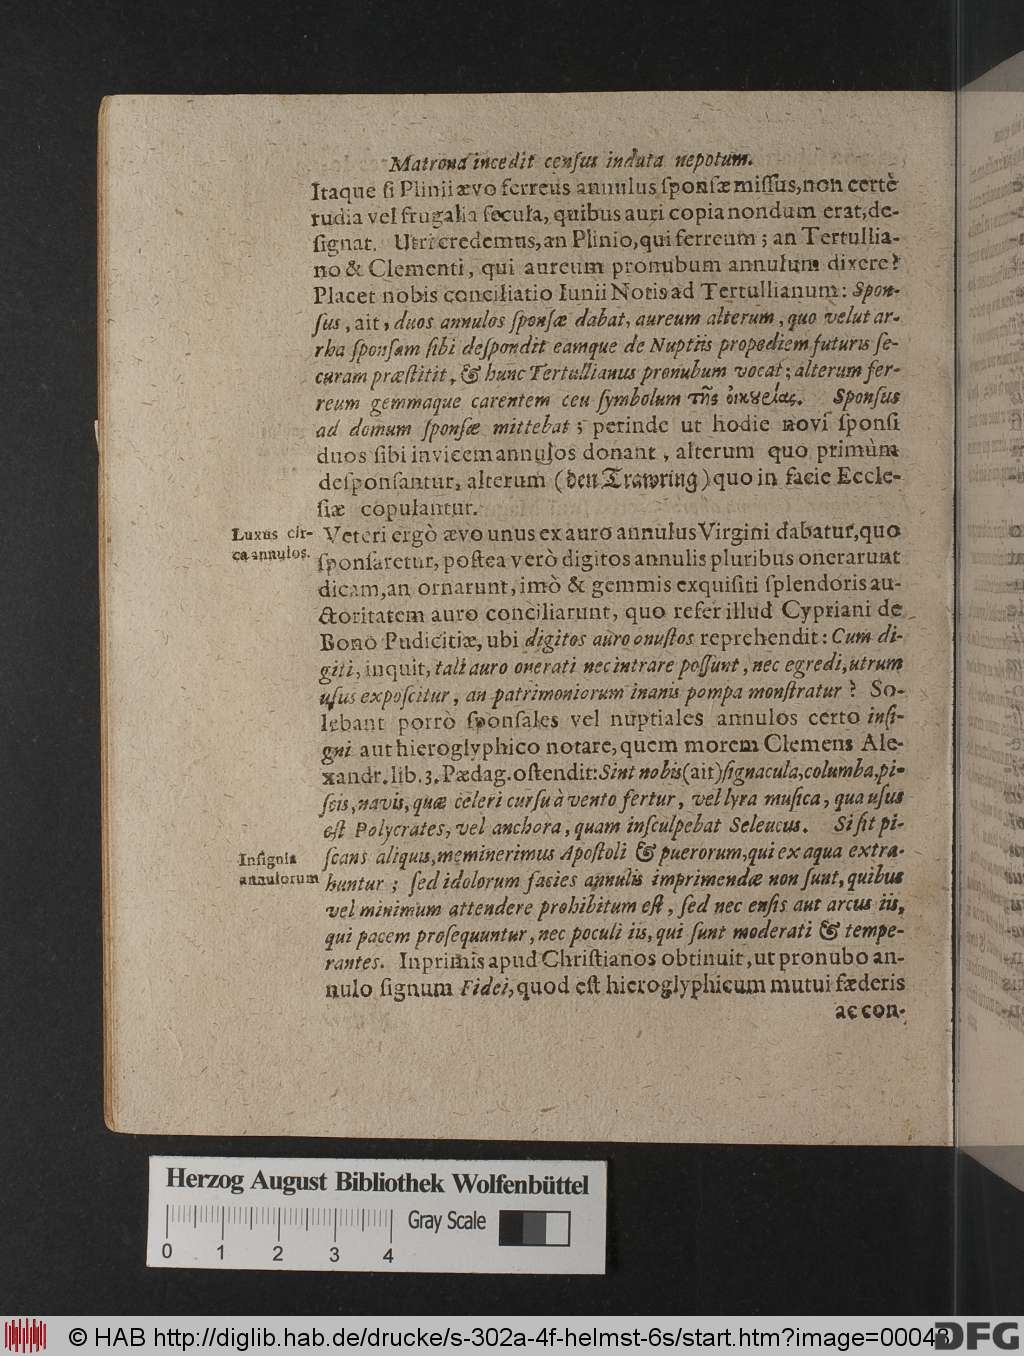 Matrona incedit census induta nepotum.
Itaque ſi Plinii ævo ferreus annulus ſponſæ miſſus, non certè
rudia vel frugalia ſecula, quibus auri copia nondum erat, de-
ſignat. Utri credemus, an Plinio, qui ferreum; an Tertullia-
no & Clementi, qui aureum pronubum annulum dixere?
Placet nobis conciliatio Iunii Notis ad Tertullianum: Spon-
ſus, ait, duos annulos ſponſæ dabat, aureum alterum, quo velut ar-
rha ſponſam ſibi deſpondit eamque de Nuptiis propediem futuris ſe-
curam præſtitit, & hunc Tertullianus pronubum vocat; alterum fer-
reum gemmaque carentem ceu ſymbolum τῆς Sponſus
ad domum ſponſæ mittebat; perinde ut hodie novi ſponſi
duos ſibi invicem annulos donant, alterum quo primùm
deſponſantur, alterum (den Trawring) quo in facie Eccle-
ſiæ copulantur.
Luxus cir-
ca annulos.
Veteri ergò ævo unus ex auro annulus Virgini dabatur, quo
ſponſaretur, poſtea verò digitos annulis pluribus onerarunt
dicam, an ornarunt, imò & gemmis exquiſiti ſplendoris au-
ctoritatem auro conciliarunt, quo refer illud Cypriani de
Bono Pudicitiæ, ubi digitos auro onuſtos reprehendit: Cum di-
giti, inquit, tali auro onerati nec intrare poſſunt, nec egredi, utrum
uſus expoſcitur, an patrimoniorum inanis pompa monſtratur? So-
lebant porrò ſponſales vel nuptiales annulos certo inſi-
gni aut hieroglyphico notare, quem morem Clemens Ale-
xandr. lib. 3. Pædag. oſtendit: Sint nobis (ait) ſignacula, columba, pi-
ſcis, navis, quæ celeri curſu à vento fertur, vel lyra muſica, qua uſus
eſt Polycrates, vel anchora, quam inſculpebat Seleucus. Si ſit pi-
Inſignia
annulorum
ſcans aliquis, meminerimus Apoſtoli & puerorum, qui ex aqua extra-
huntur; ſed idolorum facies annulis imprimendæ non ſunt, quibus
vel minimum attendere prohibitum eſt, ſed nec enſis aut arcus iis,
qui pacem proſequuntur, nec poculi iis, qui ſunt moderati & tempe-
rantes. Inprimis apud Chriſtianos obtinuit, ut pronubo an-
nulo ſignum Fidei, quod eſt hieroglyphicum mutui fæderis
ac con-
Herzog August Bibliothek Wolfenbüttel
0 1 2 3 4
Gray Scale
© HAB http://diglib.hab.de/drucke/s-302a-4f-helmst-6s/start.htm?image=00043
DFG